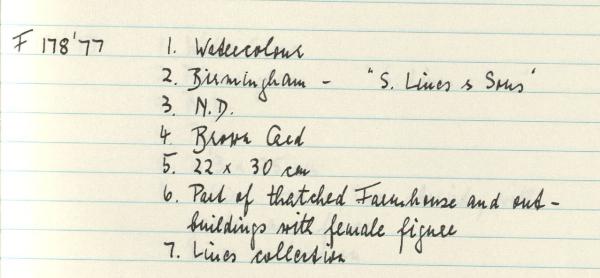 F 178'77 1. Watercolour
2. Birmingham - "S. Lines & Sons"
3. N.D.
4. Brown Card
5. 22 x 30 cm
6. Part of thatched Farmhouse and out-
buildings with female figure
7. Lines collection